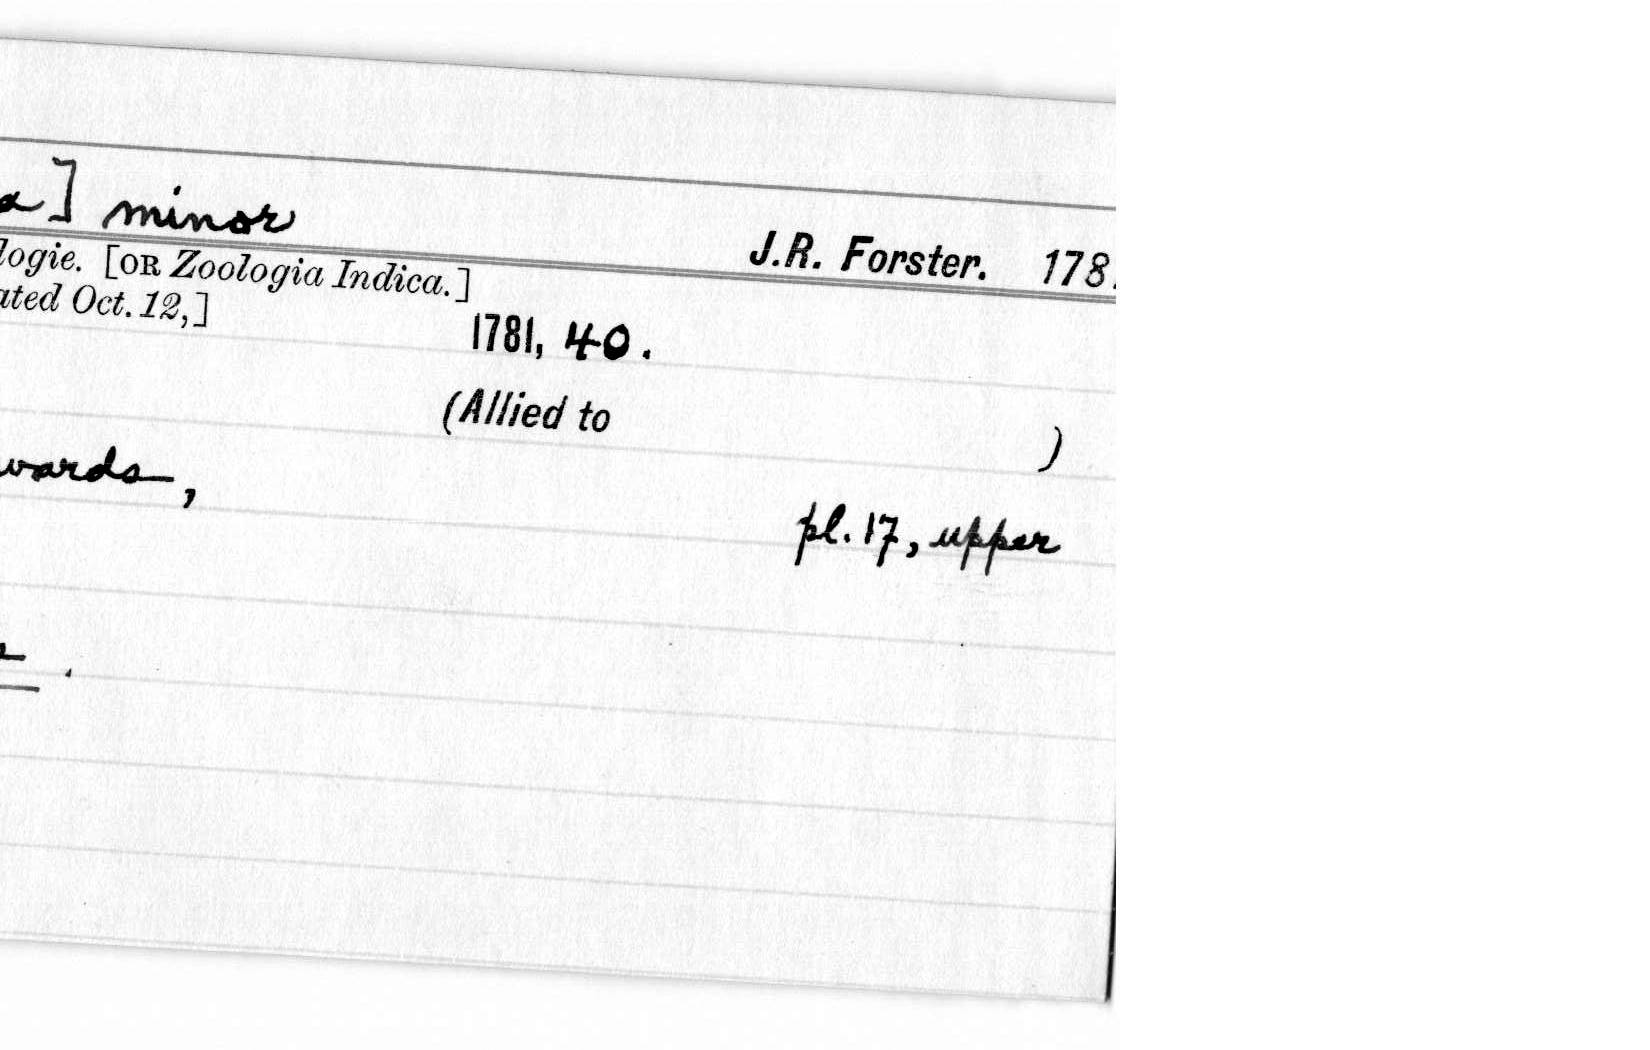 a] minor
J.R. Forster. 178
logie. [OR Zoologia Indica.]
ated Oct. 12,]
1781, 40.
(Allied to )
wards,
pl. 17, upper